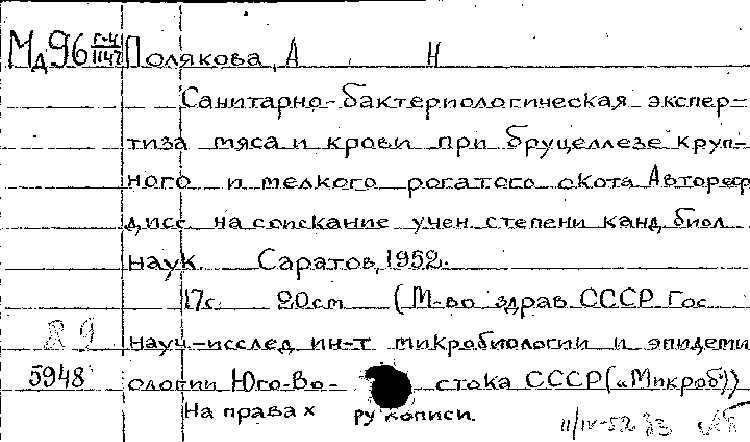 Мд96 Полякова, А Н
Санитарно-бактериологическая экспер-
тиза мяса и крови при бруцеллезе круп-
ного и мелкого рогатого скота Автореф
дисс на соискание учен степени канд биол
наук Саратов, 1952.
17с. 20см (М-во здрав СССР Гос
89 науч-исслед ин-т микробиологии и эпидеми
5948 ологии Юго-Во- стока СССР («Микроб»))
На правах рукописи.
11/IV-52